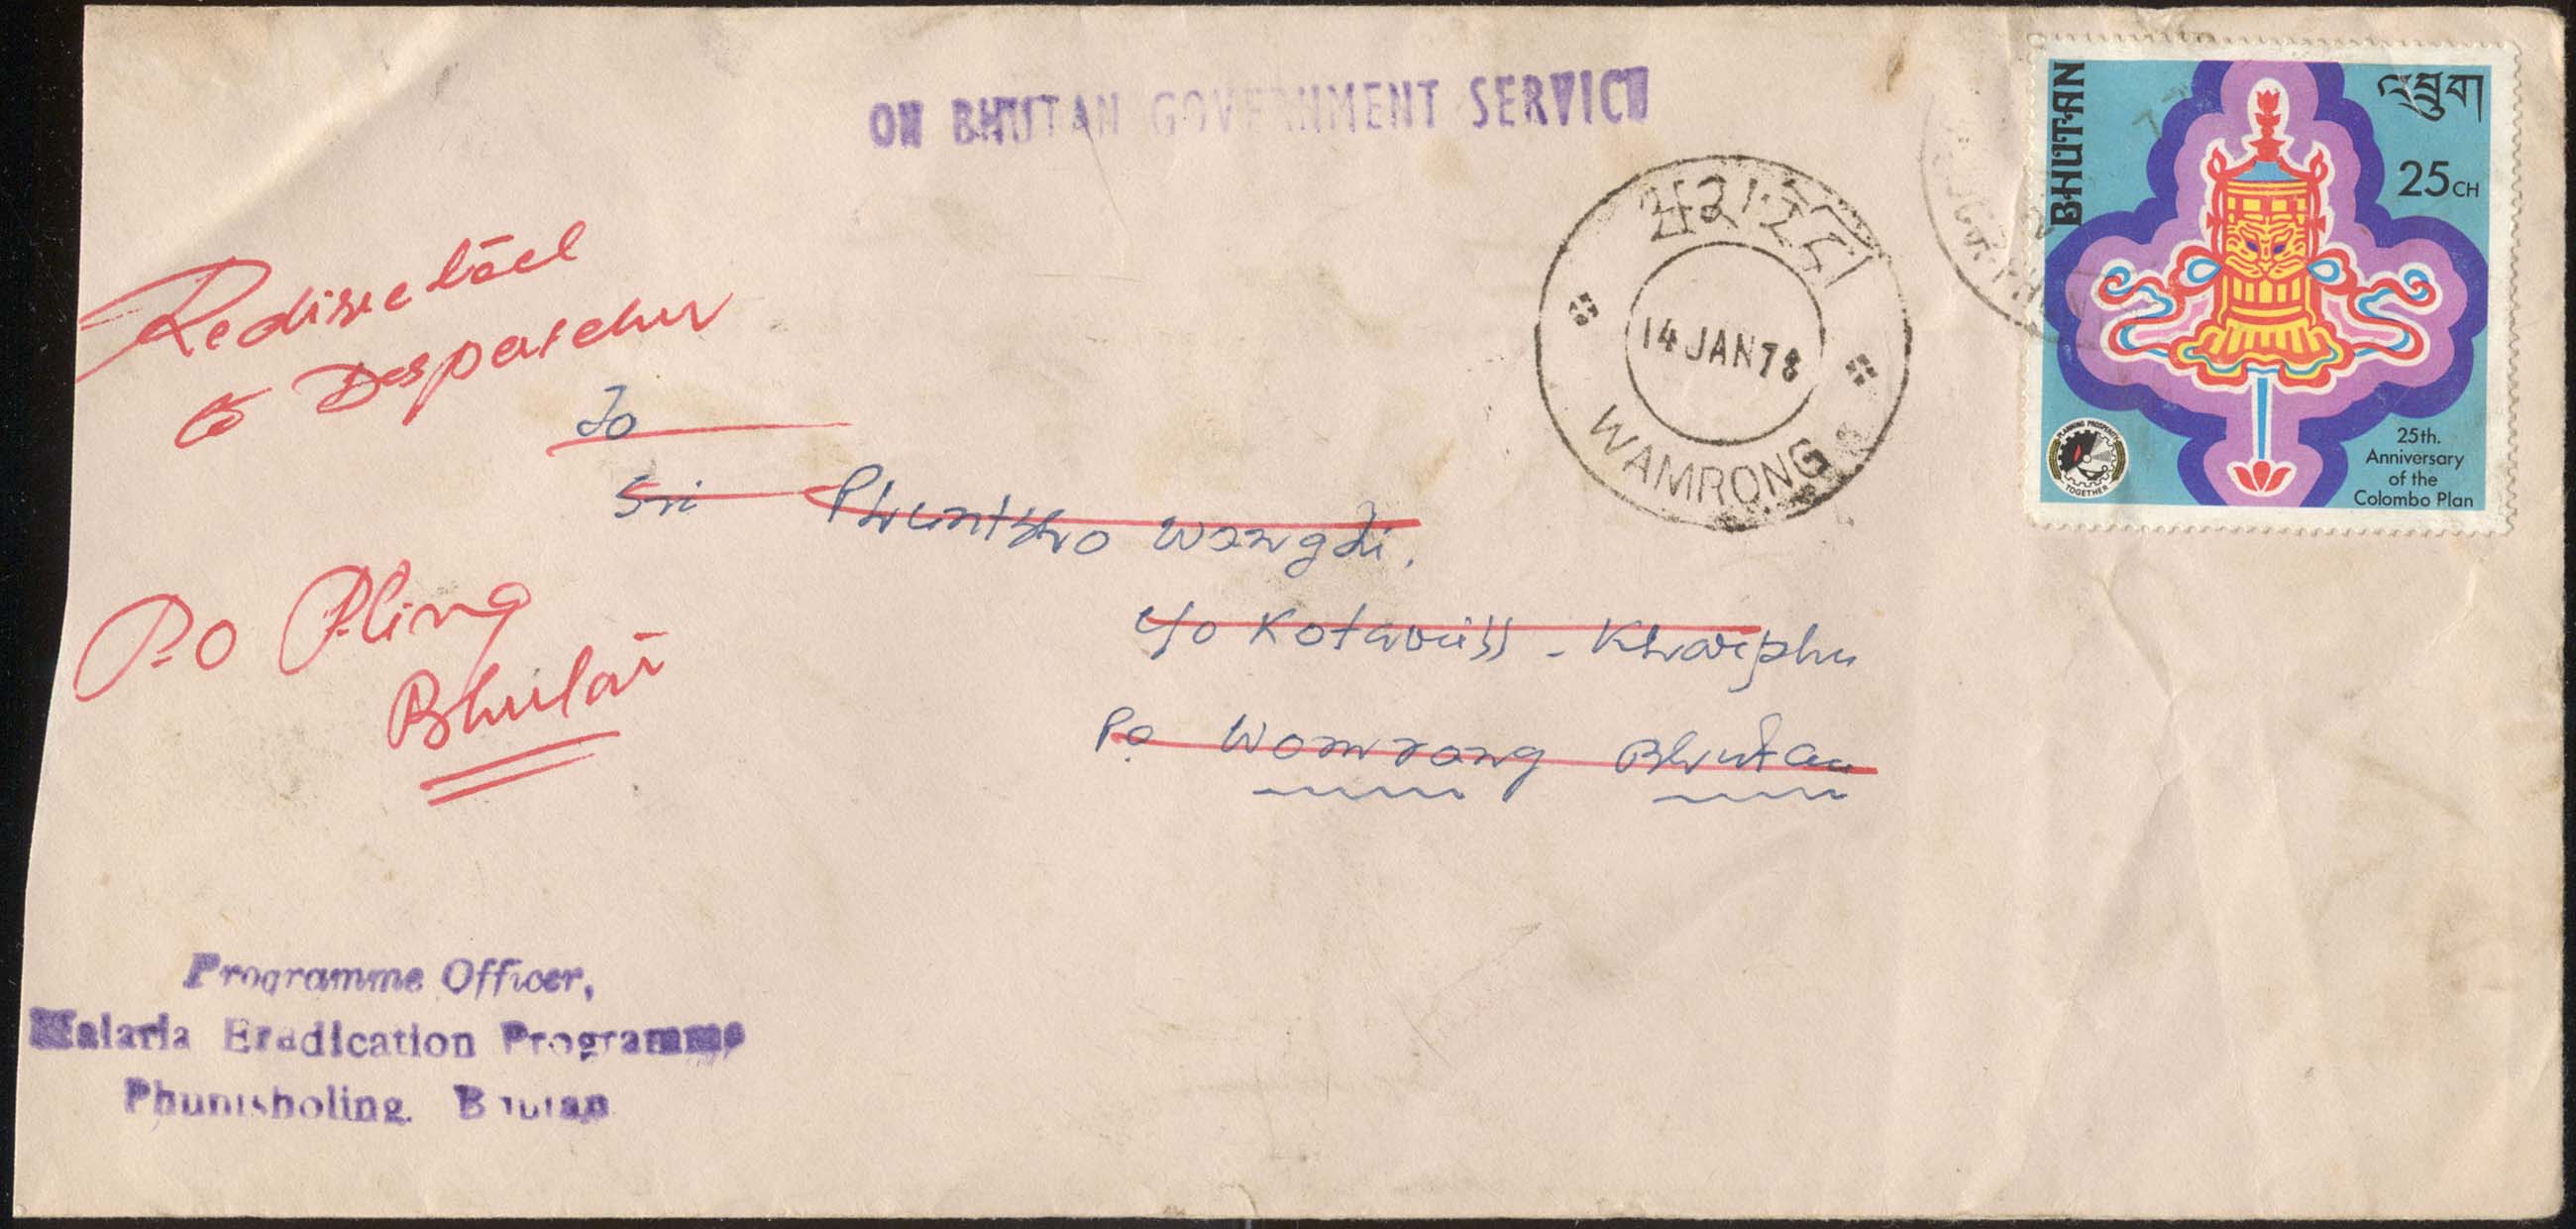 ON BHUTAN GOVERNMENT SERVICE
BHUTAN
འབྲུག
25CH
PLANNING PROSPERITY
TOGETHER
25th.
Anniversary
of the
Colombo Plan
14 JAN 78
WAMRONG
Redirected
to Despatcher
To
Sri Phuntsho Wangdi.
c/o
PO Womrong Bhutan
P.O P.ling
Bhutan
Programme Officer,
Malaria Eradication Programme
Phuntsholing. Bhutan